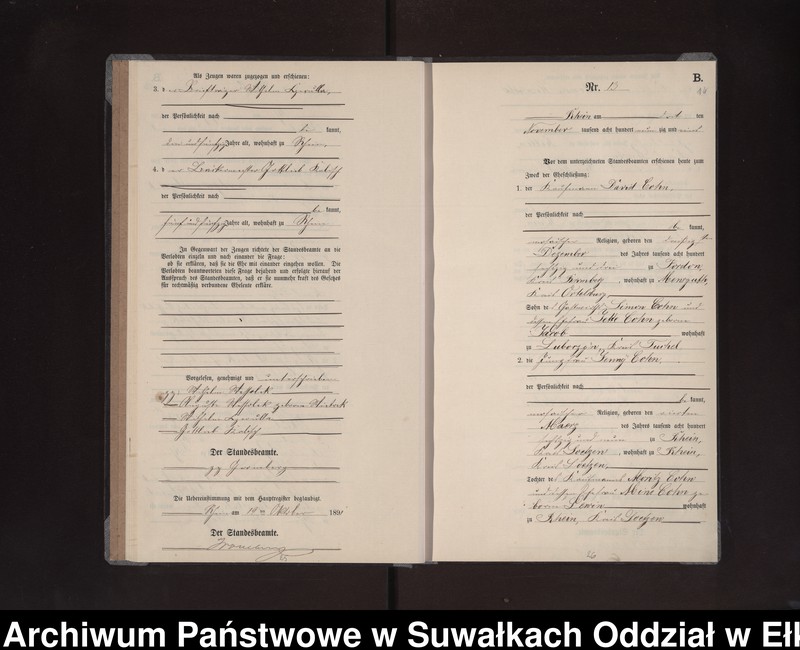 Als Zeugen waren zugezogen und erschienen:
3. der Wilhelm
der Persönlichkeit nach
kannt,
Jahre alt, wohnhaft zu Rhein
4. der Gottlieb Kalisch
der Persönlichkeit nach
be kannt,
fünf und fünfzig Jahre alt, wohnhaft zu Rhein
In Gegenwart der Zeugen richtete der Standesbeamte an die
Verlobten einzeln und nach einander die Frage:
ob sie erklären, daß sie die Ehe mit einander eingehen wollen. Die
Verlobten beantworteten diese Frage bejahend und erfolgte hierauf der
Ausspruch des Standesbeamten, daß er sie nunmehr kraft des Gesetzes
für rechtmäßig verbundene Eheleute erkläre.
Vorgelesen, genehmigt und unterschrieben
gg. Wilhelm
Auguste geborene
Wilhelm
Gottlieb Kalisch
Der Standesbeamte.
gg.
Die Uebereinstimmung mit dem Hauptregister beglaubigt.
Rhein am 14ten Oktober 189
Der Standesbeamte.
B.
Nr. 13
14
Rhein am ten
November tausend acht hundert neun zig und
Vor dem unterzeichneten Standesbeamten erschienen heute zum
Zweck der Eheschließung:
1. der Kaufmann David Cohn,
der Persönlichkeit nach
be kannt,
mosaischer Religion, geboren den
Dezember des Jahres tausend acht hundert
sechzig und zu Fordon,
Kreis Bromberg, wohnhaft zu Mensguth,
Kreis Ortelsburg
Sohn des Simon Cohn und
dessen Ehefrau Jette Cohn geborene
Jacob wohnhaft
zu Kreis Tuchel
2. die Jungfrau Jenny Cohn,
der Persönlichkeit nach
be kannt,
mosaischer Religion, geboren den vierten
Maerz des Jahres tausend acht hundert
sechzig und neun zu Rhein,
Kreis Loetzen, wohnhaft zu Rhein,
Kreis Loetzen,
Tochter des Kaufmanns Moritz Cohn
und dessen Ehefrau Mine Cohn ge
borene Lewin wohnhaft
zu Rhein, Kreis Loetzen
Archiwum Państwowe w Suwałkach Oddział w Ełk